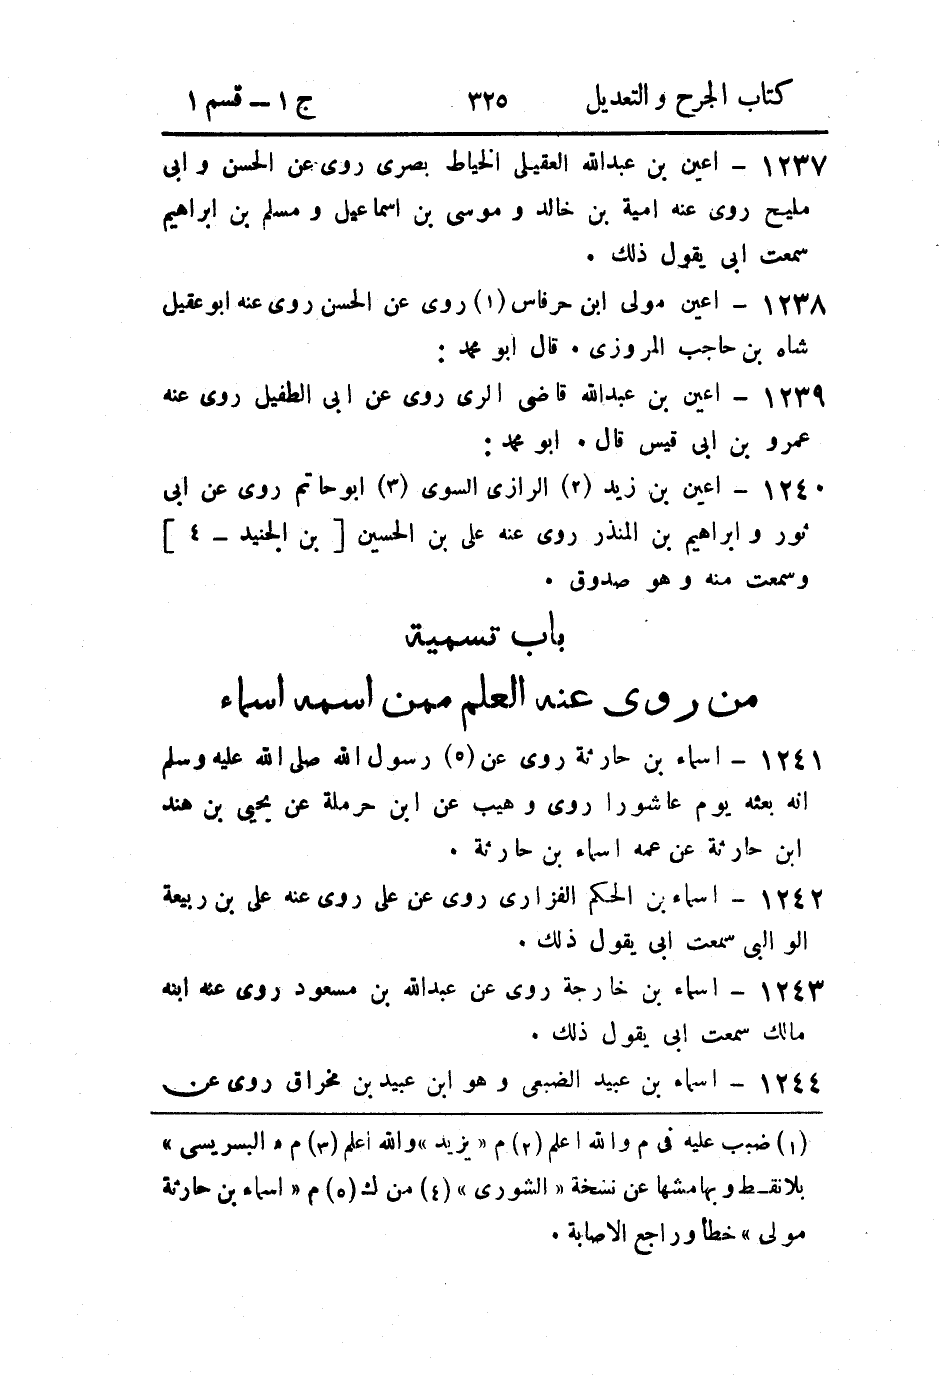 كتاب الجرح والتعديل ٣٢٥ ج ١ – قسم ١
١٢٣٧ – اعين بن عبدالله العقيلى الخياط بصرى روى عن الحسن و ابى
مليح روى عنه امية بن خالد و موسى بن اسماعيل و مسلم بن ابراهيم
سمعت ابى يقول ذلك .
١٢٣٨ – اعين مولى ابن حرفاس (١) روى عن الحسن روى عنه ابو عقيل
شاه بن حاجب المروزى . قال ابو محمد :
١٢٣٩ – اعين بن عبدالله قاضى الرى روى عن ابى الطفيل روى عنه
عمرو بن ابى قيس قال . ابو محمد :
١٢٤٠ – اعين بن زيد (٢) الرازى السوى (٣) ابو حاتم روى عن ابى
ثور و ابراهيم بن المنذر روى عنه على بن الحسين [ بن الجنيد – ٤ ]
وسمعت منه و هو صدوق .
باب تسمية
من روى عنه العلم ممن اسمه اسماء
١٢٤١ – اسماء بن حارثة روى عن (٥) رسول الله صلى الله عليه وسلم
انه بعثه يوم عاشورا روى وهيب عن ابن حرملة عن يحيى بن هند
ابن حارثة عن عمه اسماء بن حارثة .
١٢٤٢ – اسماء بن الحكم الفزارى روى عن على روى عنه على بن ربيعة
الوالبى سمعت ابى يقول ذلك .
١٢٤٣ – اسماء بن خارجة روى عن عبدالله بن مسعود روى عنه ابنه
مالك سمعت ابى يقول ذلك .
١٢٤٤ – اسماء بن عبيد الضبعى و هو ابن عبيد بن مخراق روى عن
(١) ضبب عليه فى م والله اعلم (٢) م « يزيد » والله اعلم (٣) م « البسريسى »
بلانقط و بهامشها عن نسخة « الشورى » (٤) من ك (٥) م « اسماء بن حارثة
مولى » خطأ وراجع الاصابة .